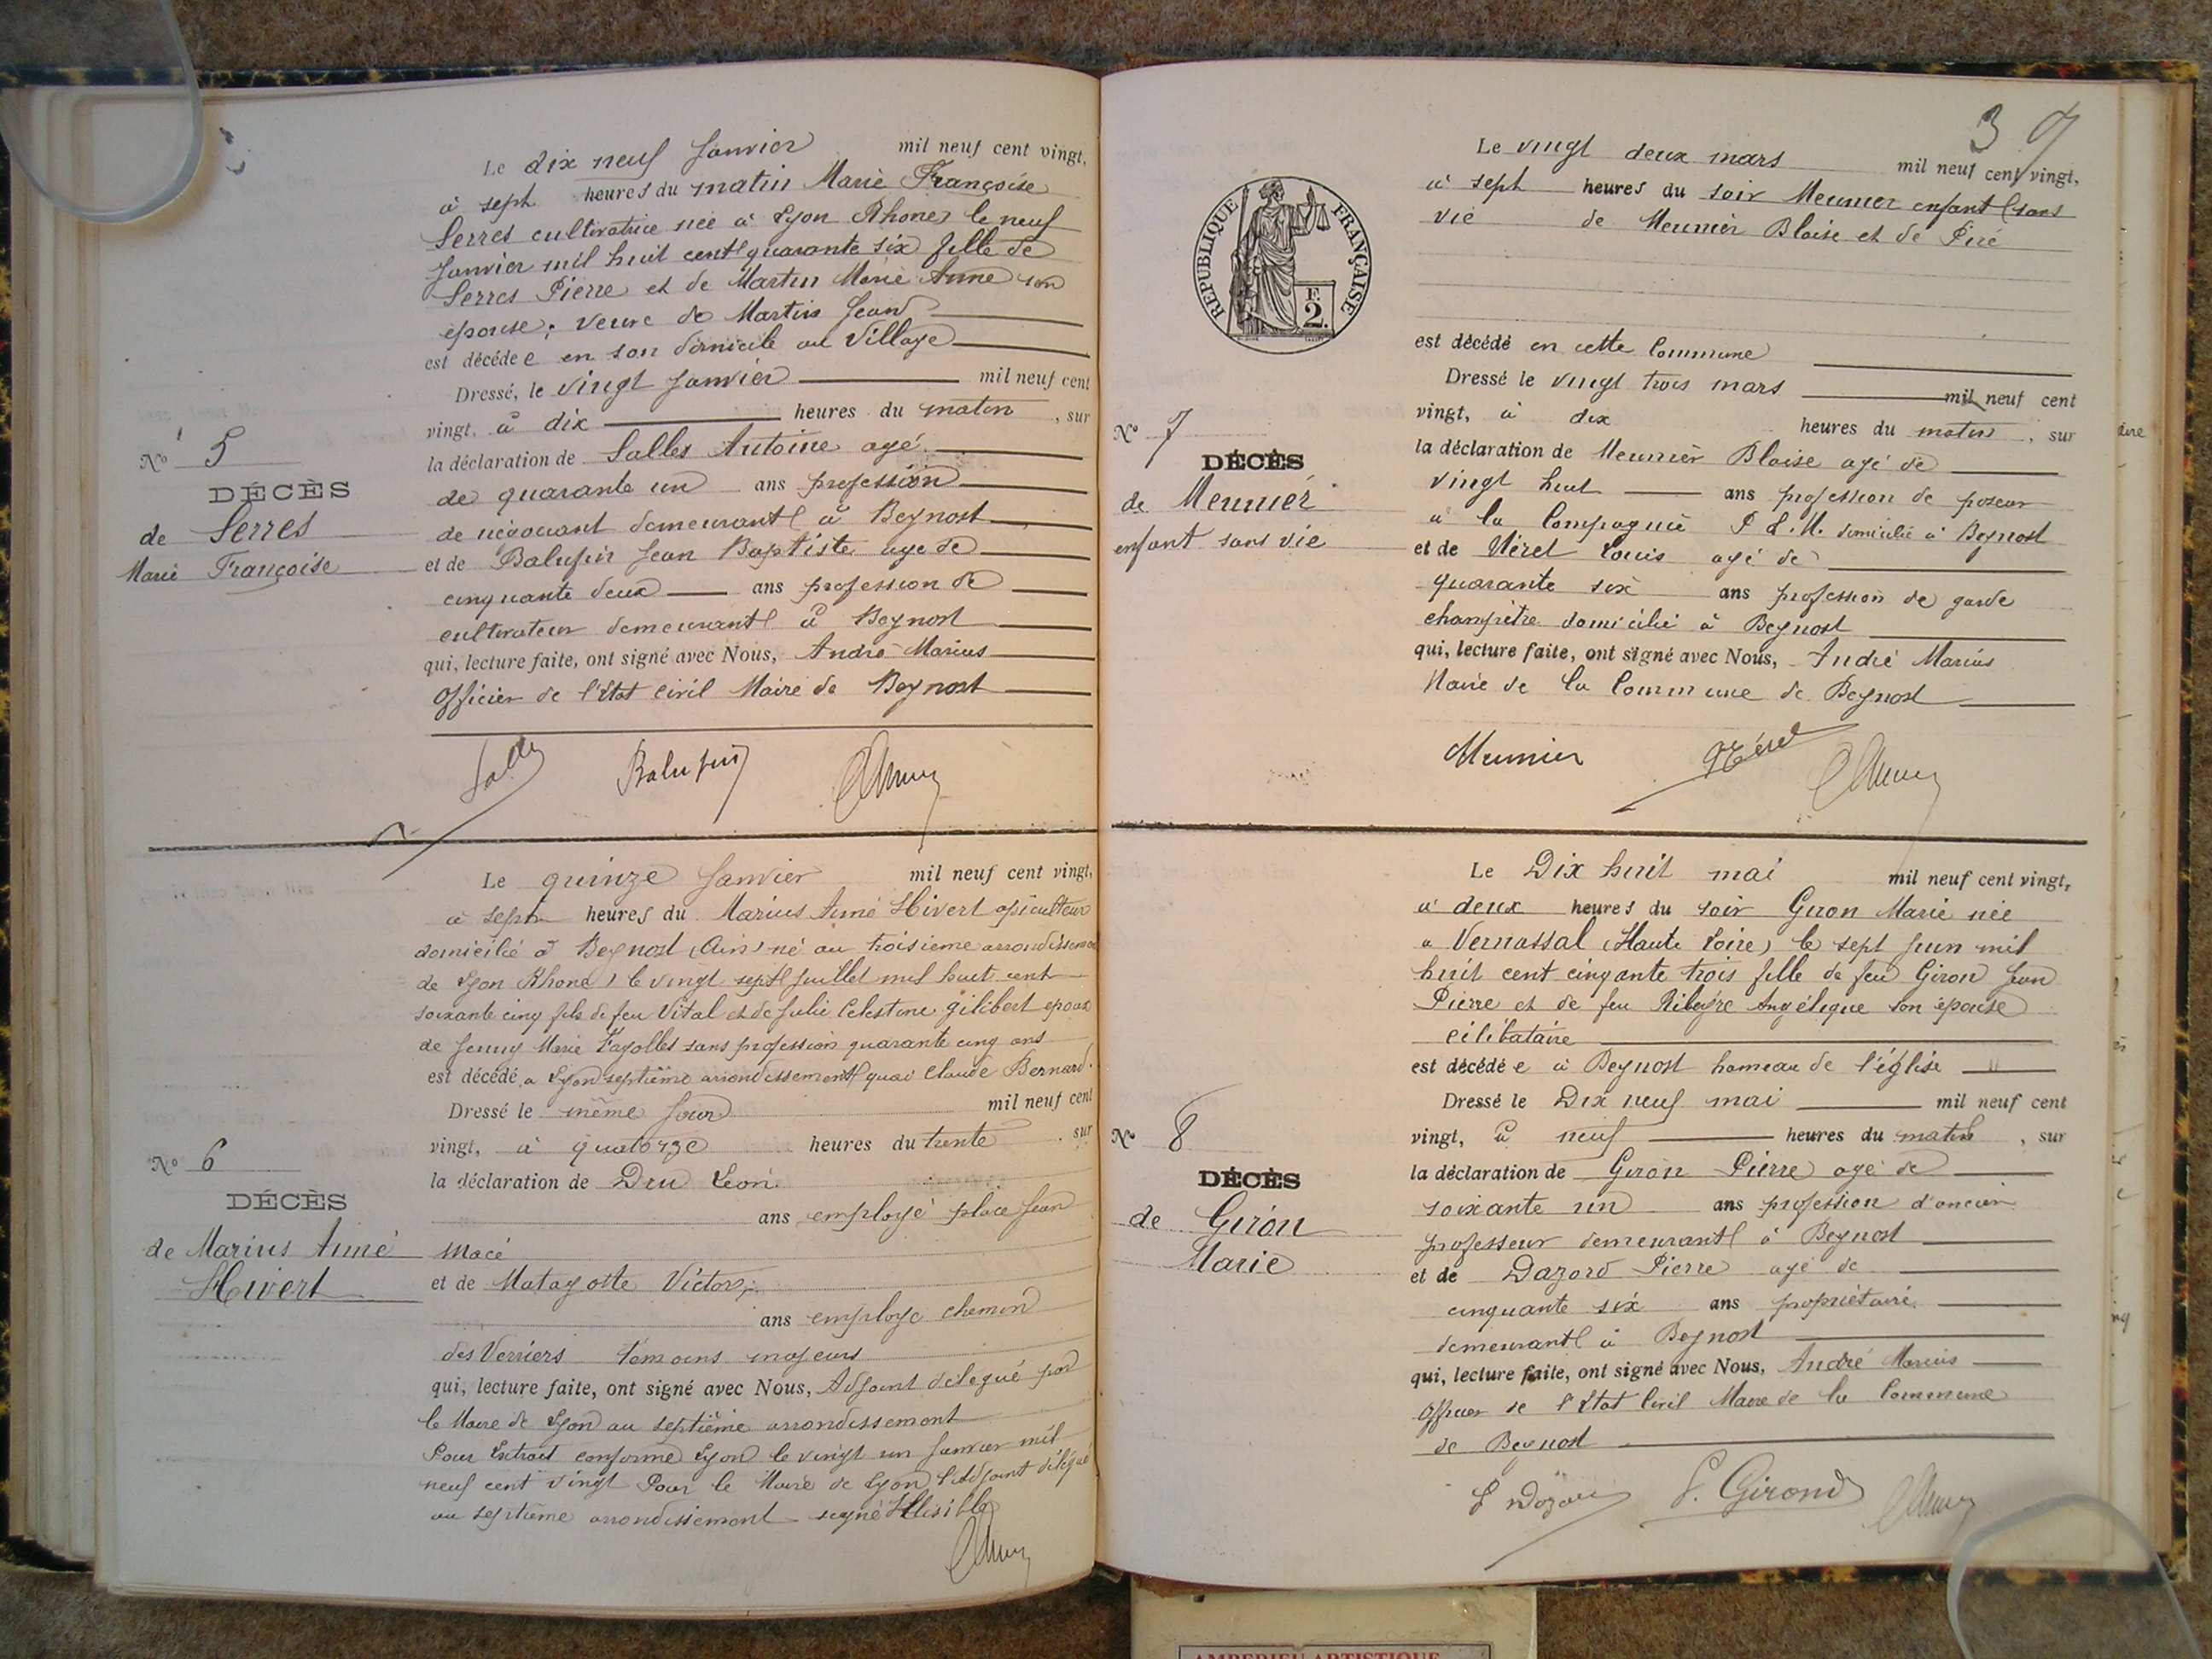 Le dix neuf Janvier mil neuf cent vingt,
à sept heures du matin Marie Françoise
Serres cultivatrice née à Lyon Rhone) le neuf
Janvier mil huit cent quarante six fille de
Serres Pierre et de Martin Marie Anne son
épouse; veuve de Martin Jean
est décédée en son domicile au Village
Dressé, le vingt Janvier mil neuf cent
vingt, à dix heures du matin, sur
la déclaration de Salles Antoine agé
de quarante un ans profession
de négociant demeurant à Beynost
et de Balufin Jean Baptiste age de
cinquante deux ans profession de
cultivateur demeurant à Beynost
qui, lecture faite, ont signé avec Nous, André Marius
Officier de l'Etat Civil Maire de Beynost
N° 5
DÉCÈS
de Serres
Marie Françoise
Balufin
Le quinze Janvier mil neuf cent vingt,
à sept heures du Marius Aimé Hivert apiculteur
domicilié à Beynost (Ain) né au troisième arrondissement
de Lyon Rhone) le vingt sept Juillet mil huit cent
soixante cinq fils de feu Vital et de Julie Celestine Gilibert epoux
de Jenny Marie Fayolles sans profession quarante cinq ans
est décédé a Lyon septième arrondissement quai Claude Bernard.
Dressé le même Jour mil neuf cent
vingt, à quatorze heures du trente, sur
la déclaration de Dru Léon
ans employé place Jean
Macé
et de Matayotte Victor,
ans employe chemin
des Verriers témoins majeurs
qui, lecture faite, ont signé avec Nous, Adjoint délégué par
le Maire de Lyon au septième arrondissement
Pour Extrait conforme Lyon le vingt un Janvier mil
neuf cent vingt Pour le Maire de Lyon l'Adjoint délégué
au septième arrondissement signé Illisible
N° 6
DÉCÈS
de Marius Aimé
Hivert
3
REPUBLIQUE FRANÇAISE
F.
2.
Le vingt deux mars mil neuf cent vingt,
à sept heures du soir Meunier enfant (sans
vie de Meunier Blaise et de Piré
est décédé en cette Commune
Dressé le vingt trois mars mil neuf cent
vingt, à dix heures du matin, sur
la déclaration de Meunier Blaise agé de
vingt huit ans profession de poseur
à la Compagnie P.L.M. domicilié à Beynost
et de Néret Louis agé de
quarante six ans profession de garde
champêtre domicilié à Beynost
qui, lecture faite, ont signé avec Nous, André Marius
Maire de la Commune de Beynost
N° 7
DÉCÈS
de Meunier
enfant sans vie
Meunier Néret
Le Dix huit mai mil neuf cent vingt,
à deux heures du soir Giron Marie née
a Vernassal (Haute Loire) le sept Juin mil
huit cent cinqante trois fille de feu Giron Jean
Pierre et de feu Ribeyre Angélique son épouse
célibataire
est décédée à Beynost hameau de l'église
Dressé le Dix neuf mai mil neuf cent
vingt, à neuf heures du matin, sur
la déclaration de Giron Pierre agé de
soixante un ans profession d'ancien
professeur demeurant à Beynost
et de Dazord Pierre agé de
cinquante six ans propriétaire
demeurant à Beynost
qui, lecture faite, ont signé avec Nous, André Marius
Officier de l'Etat Civil Maire de la Commune
de Beynost
N° 8
DÉCÈS
de Giron
Marie
P. Girond
AMBERIEU ARTISTIQUE